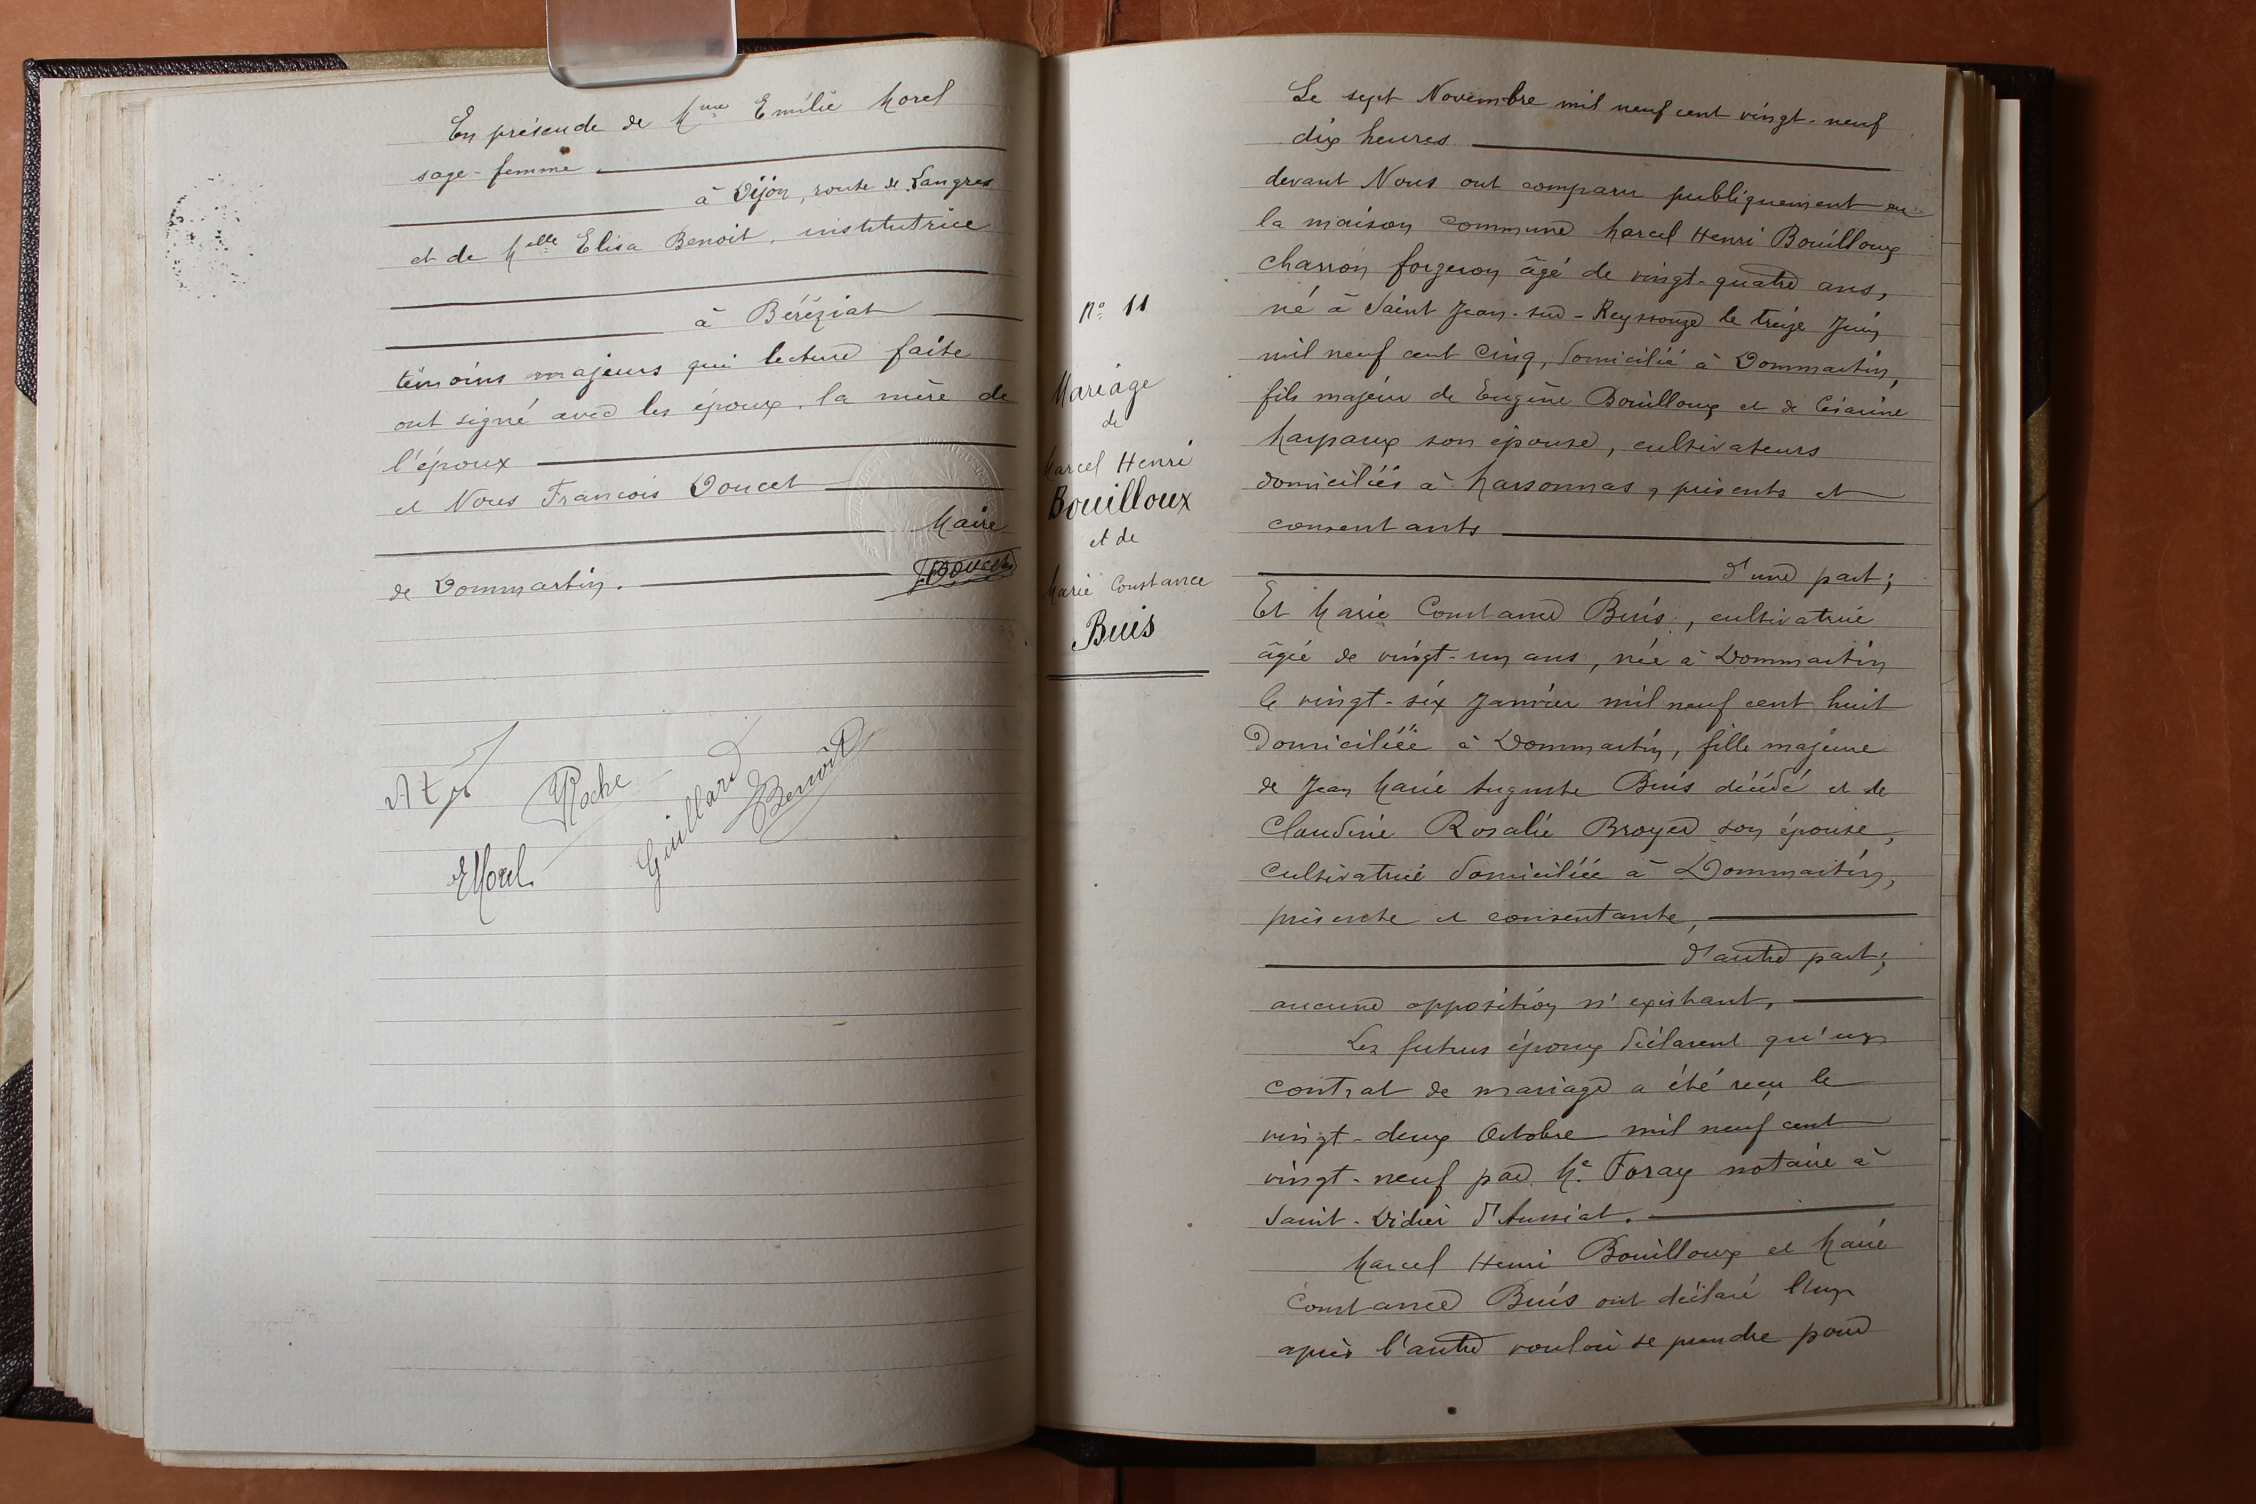 En présence de Mme Emilie Morel
sage-femme
à Dijon, route de Langres
et de Melle Elisa Benoit, institutrice
à Béréziat
témoins majeurs qui lecture faite
ont signé avec les époux, la mère de
l'époux
et Nous François Doucet
Maire
de Dommartin.
Doucet
Roche
Guillard
Benoit
EMorel
No 11
Mariage
de
Marcel Henri
Bouilloux
et de
Marie Constance
Buis
Le sept Novembre mil neuf cent vingt-neuf
dix heures
devant Nous ont comparu publiquement en
la maison commune Marcel Henri Bouilloux
charron forgeron âgé de vingt-quatre ans,
né à Saint Jean-sur-Reyssouze le treize Juin
mil neuf cent cinq, domicilié à Dommartin,
fils majeur de Eugène Bouilloux et de Césarine
Marpaux son épouse, cultivateurs
domiciliés à Marsonnas, présents et
consentants
d'une part;
Et Marie Constance Buis, cultivatrice
âgée de vingt-un ans, née à Dommartin
le vingt-six Janvier mil neuf cent huit
domiciliée à Dommartin, fille majeure
de Jean Marie Auguste Buis décédé et de
Claudine Rosalie Broyer son épouse,
cultivatrice domiciliée à Dommartin,
présente et consentante,
d'autre part;
aucune opposition n'existant,
Les futurs époux déclarent qu'un
contrat de mariage a été reçu le
vingt-deux Octobre mil neuf cent
vingt-neuf par Me Foray notaire à
Saint-Didier d'Aussiat.
Marcel Henri Bouilloux et Marie
Constance Buis ont déclaré l'un
après l'autre vouloir se prendre pour